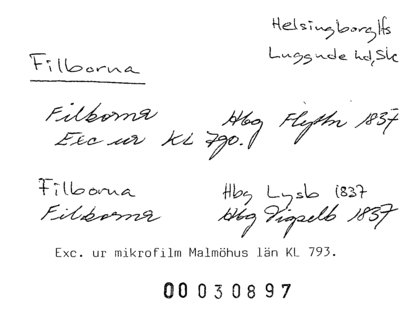 Helsingborg lfs
Luggude hd, Sk
Filborna
Filborna Hbg Flyttn 1837
Exc ur KL 790.
Filborna Hbg Lysb 1837
Filborna Hbg Vigselb 1837
Exc. ur mikrofilm Malmöhus län KL 793.
00030897